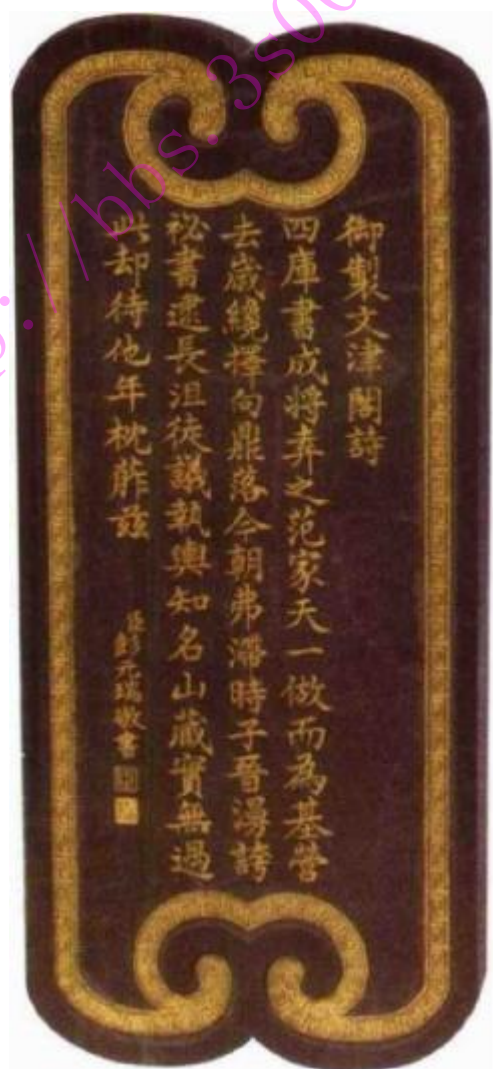 御製文津閣詩
四庫書成將弆之范家天一倣而為基營
去歲纔擇向鼎落今朝弗滯時子晉漫誇
祕書逮長沮徒議執輿知名山藏實無過
此却待他年枕葄茲
臣彭元瑞敬書
://bbs.3s00